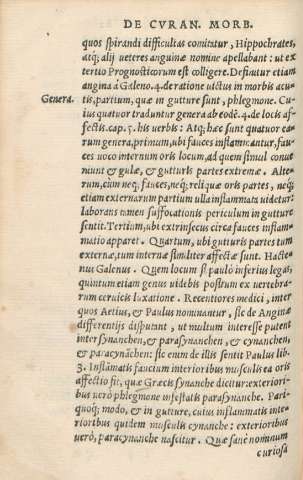 DE CVRAN. MORB.
quos spirandi difficultas comitatur, Hippochrates,
atq; alij veteres anguinæ nomine apellabant: ut ex
tertio Prognosticorum est colligere. Definitur etiam
angina à Galeno. 4. de ratione uictus in morbis acu-
Genera. tis, partium, quæ in gutture sunt, phlegmone. Cu-
ius quatuor traduntur genera ab eodē. 4. de locis af-
fectis. cap. 5. his uerbis: Atq; hæc sunt quatuor ea-
rum genera, primum, ubi fauces inflammantur, fau-
ces uoco internum oris locum, ad quem simul conue
niunt & gulæ, & gutturis partes extremæ. Alte-
rum, cùm neq; fauces, neq; reliquæ oris partes, neq;
etiam externarum partium ulla inflammata uidetur:
laborans tamen suffocationis periculum in gutture
sentit. Tertium, ubi extrinsecus circa fauces inflam-
matio apparet. Quartum, ubi gutturis partes tum
externæ, tum internæ similiter affectæ sunt. Hacte-
nus Galenus. Quem locum si paulò inferius legas,
quintum etiam genus uidebis positum ex uertebra-
rum ceruicis luxatione. Recentiores medici, inter
quos Aetius, & Paulus nominantur, sic de Anginæ
differentijs disputant, ut multum interesse putent
inter synanchen, & parasynanchen, & cynanchen,
& paracynāchen: sic enim de illis sentit Paulus lib.
3. Inflāmatis faucium interioribus musculis ea oris
affectio fit, quæ Græcis synanche dicitur: exteriori-
bus uerò phlegmone infestatis parasynanche. Pari-
quoq; modo, & in gutture, cuius inflammatis inte-
rioribus quidem musculis cynanche: exterioribus
uerò, paracynanche nascitur. Quæ sanè nominum
curiosa